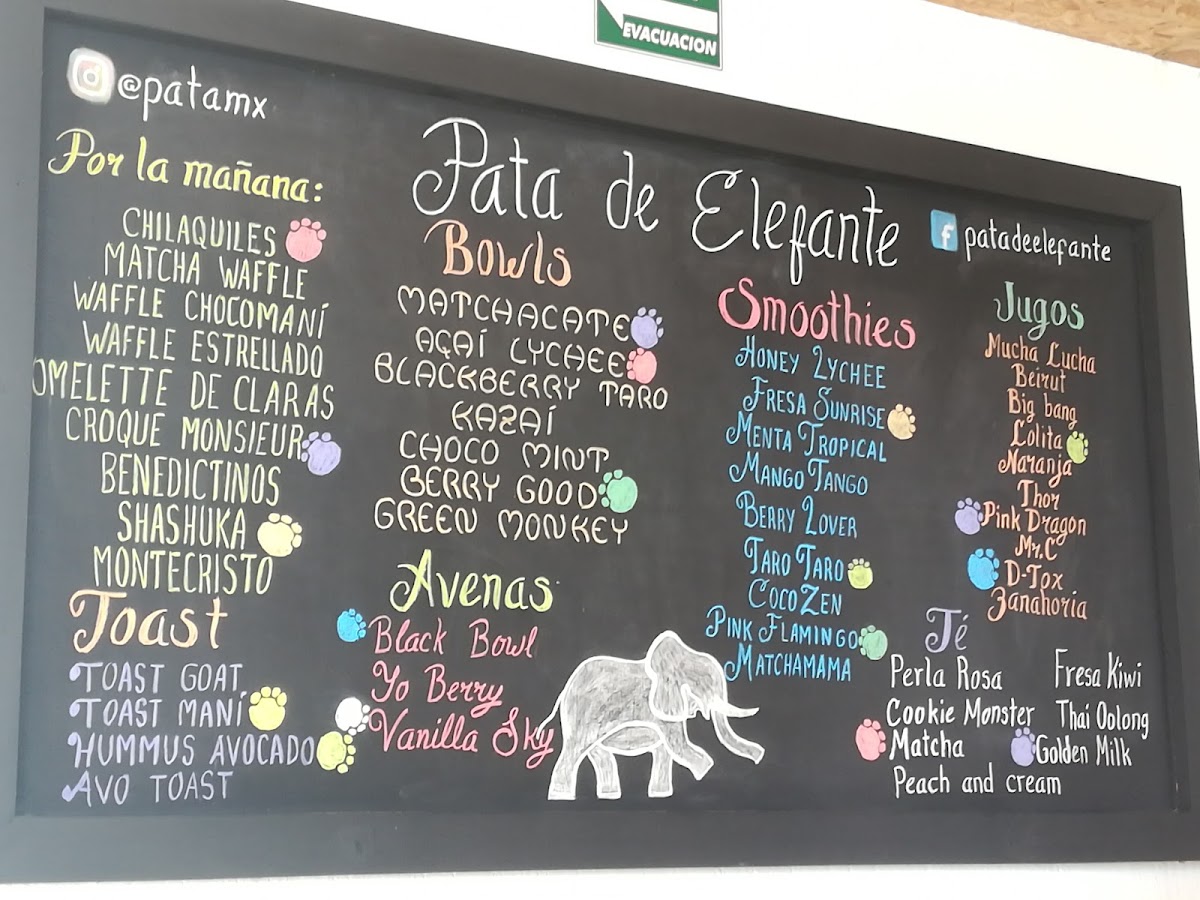 EVACUACION
@patamx
Pata de Elefante
patadeelefante
Por la mañana:
CHILAQUILES
MATCHA WAFFLE
WAFFLE CHOCOMANÍ
WAFFLE ESTRELLADO
OMELETTE DE CLARAS
CROQUE MONSIEUR
BENEDICTINOS
SHASHUKA
MONTECRISTO
Toast
TOAST GOAT
TOAST MANÍ
HUMMUS AVOCADO
AVO TOAST
Bowls
MATCHACATE
AÇAÍ LYCHEE
BLACKBERRY TARO
KAZAÍ
CHOCO MINT
BERRY GOOD
GREEN MONKEY
Avenas
Black Bowl
Yo Berry
Vanilla Sky
Smoothies
HONEY LYCHEE
FRESA SUNRISE
MENTA TROPICAL
MANGO TANGO
BERRY LOVER
TARO TARO
COCO ZEN
PINK FLAMINGO
MATCHAMAMA
Jugos
Mucha Lucha
Beirut
Big bang
Lolita
Naranja
Thor
Pink Dragon
Mr.C
D-Tox
Zanahoria
Té
Perla Rosa
Cookie Monster
Matcha
Peach and cream
Fresa Kiwi
Thai Oolong
Golden Milk